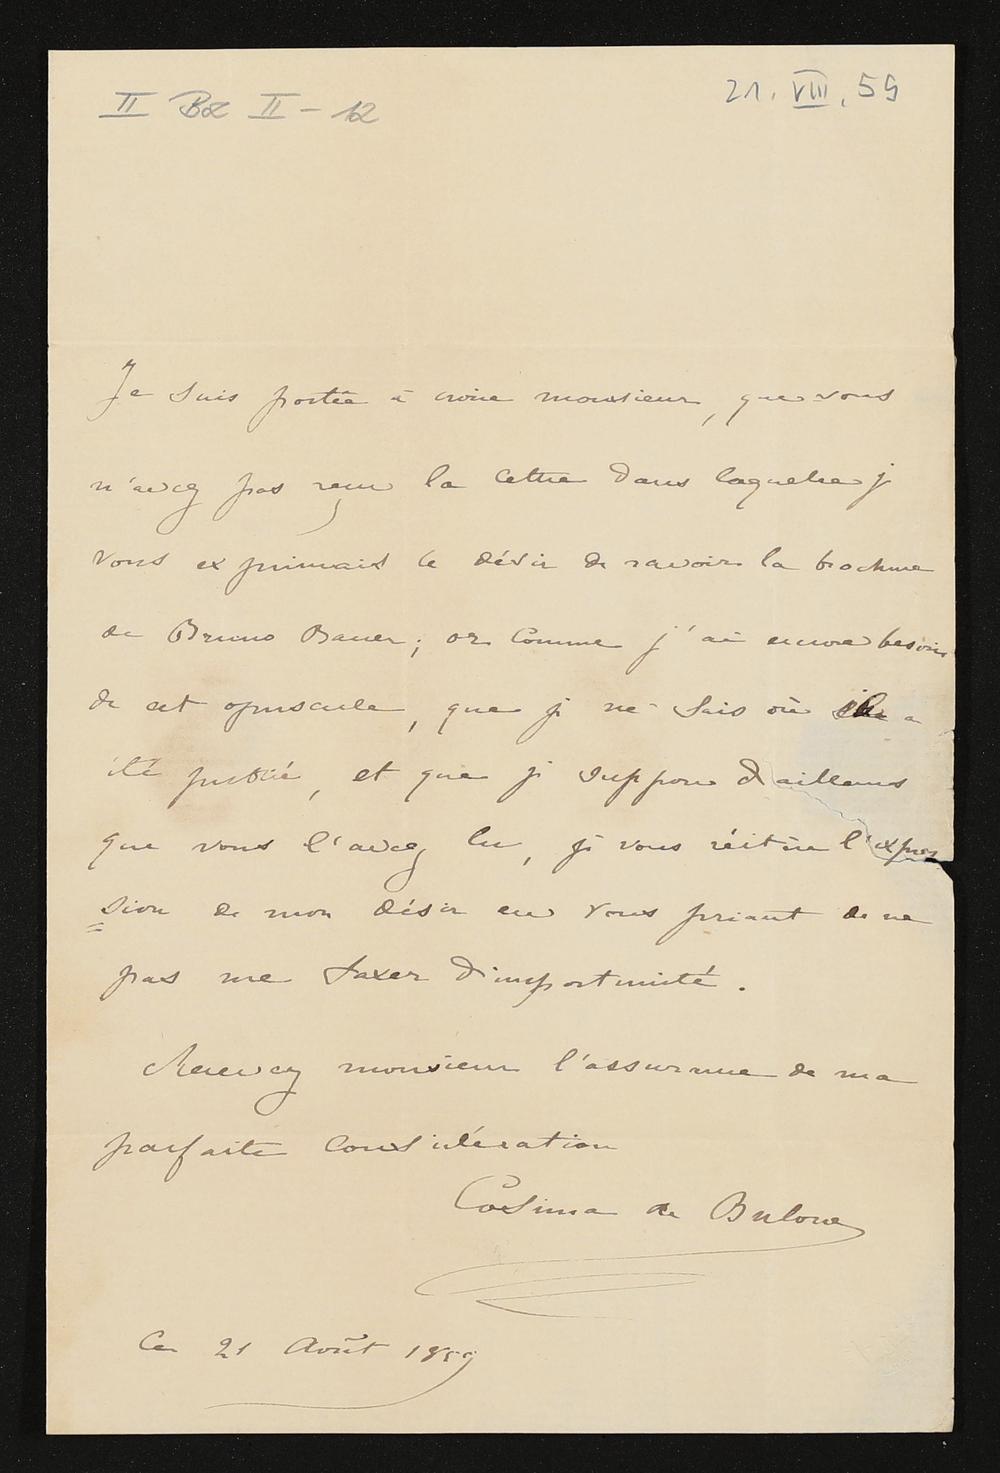 II B2 II - 12
21. VIII. 59
Je suis portée à croire monsieur, que vous
n'avez pas reçu la lettre dans laquelle je
vous exprimais le désir de ravoir la brochure
de Bruno Bauer; or comme j'ai encore besoin
de cet opuscule, que je ne sais où il a
été publié, et que je suppose d'ailleurs
que vous l'avez lu, je vous réitère l'expres
sion de mon désir en vous priant de ne
pas me taxer d'importunité.
Recevez monsieur l'assurance de ma
parfaite considération
Cosima de Bulow
Ce 21 Août 1859